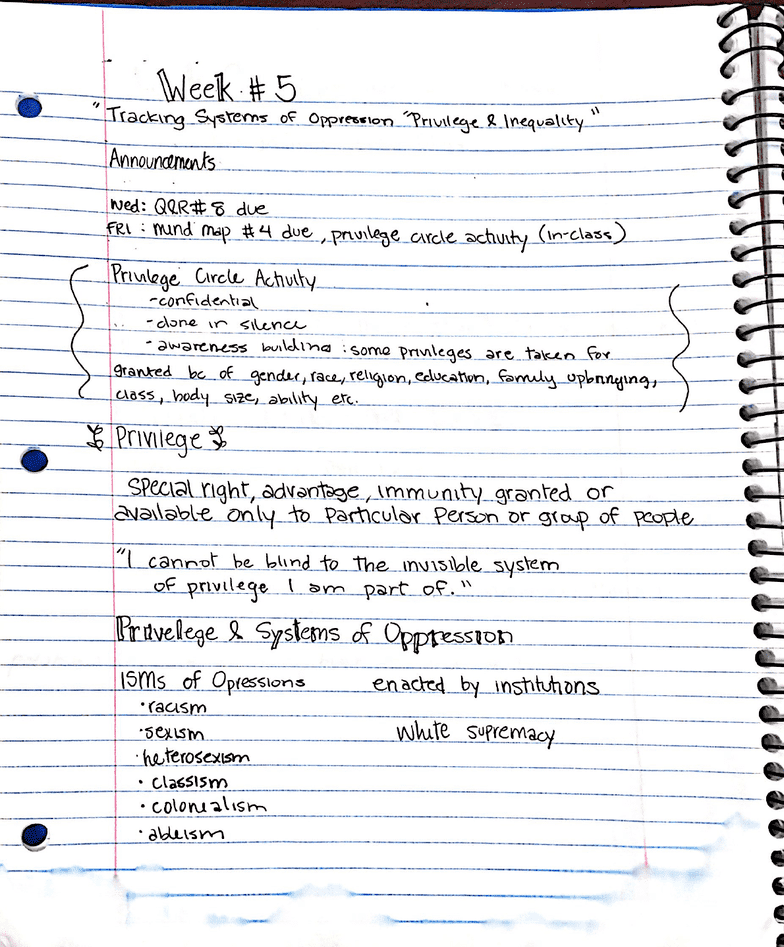 Week #5
"Tracking Systems of Oppression "Privilege & Inequality"
Announcements
Wed: QQR#8 due
FRI: mind map #4 due, privilege circle activity (in-class)
Privilege Circle Activity
-confidential
-done in silence
-awareness building: some privileges are taken for
granted bc of gender, race, religion, education, family upbringing,
class, body size, ability etc.
Privilege
special right, advantage, immunity granted or
available only to particular person or group of people
"I cannot be blind to the invisible system
of privilege I am part of."
Privelege & Systems of Oppression
isms of Opressions enacted by institutions
·racism
·sexism White supremacy
·heterosexism
·classism
·colonealism
·ableism